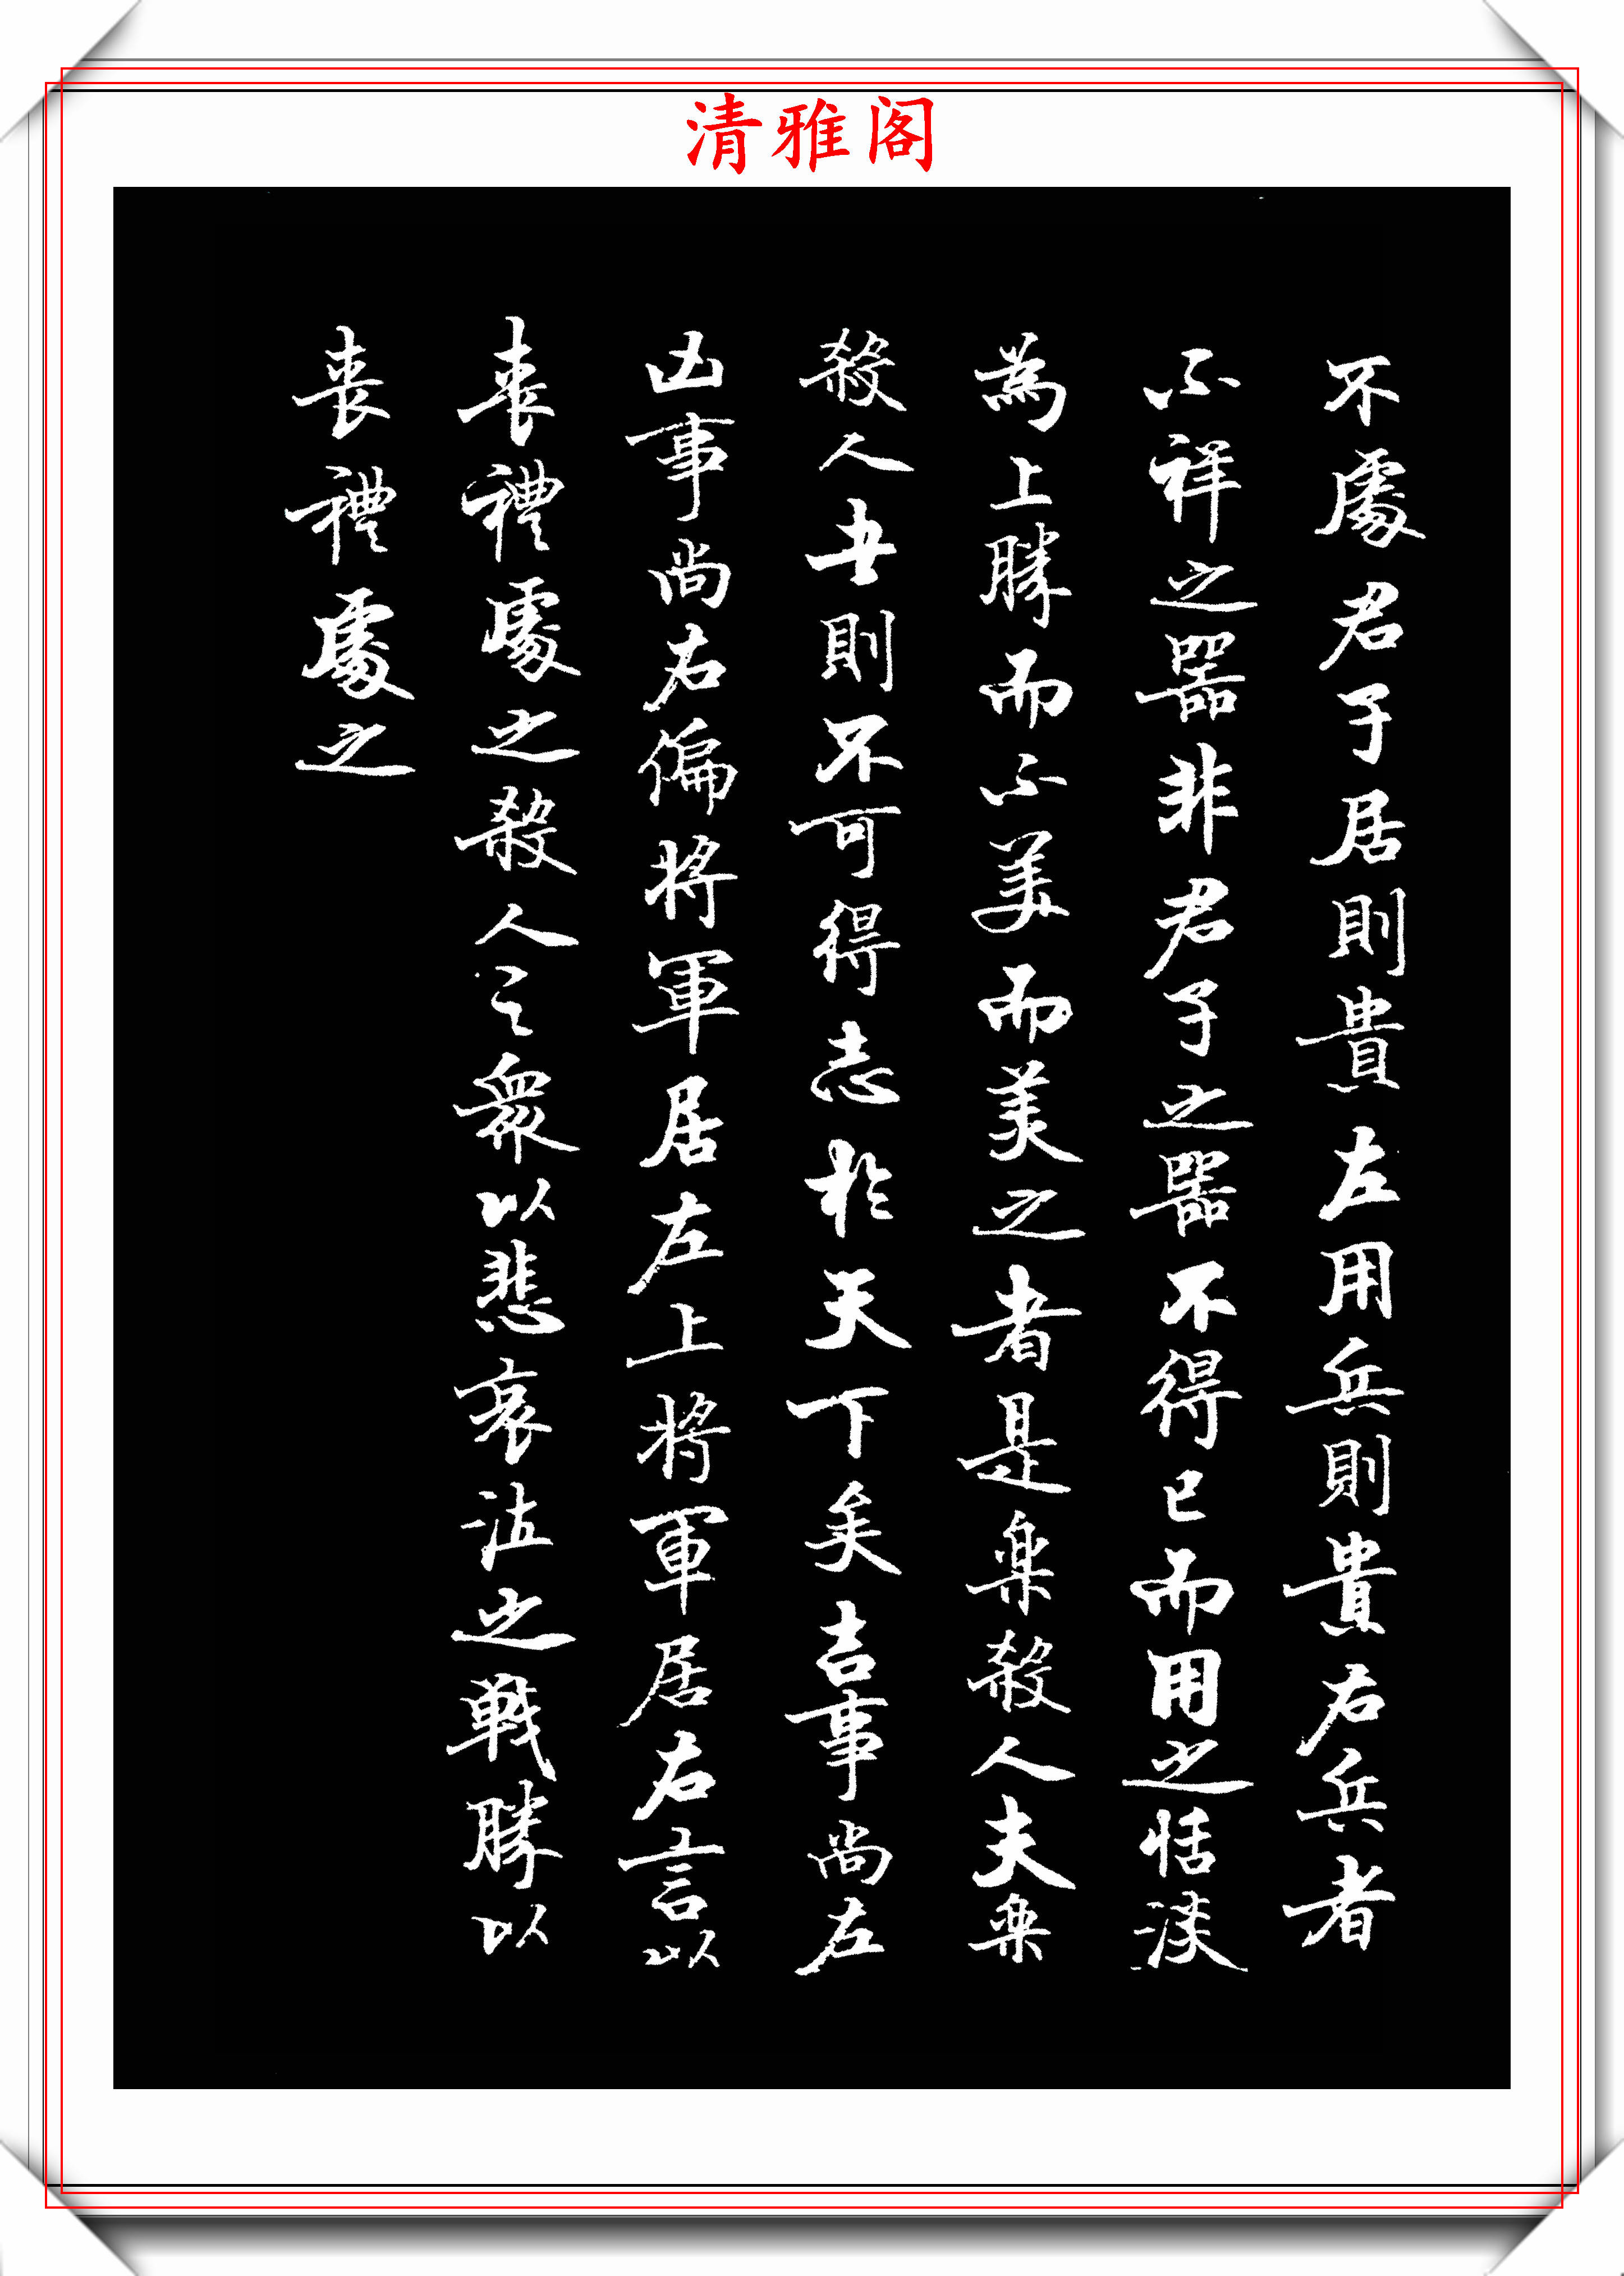 清雅阁
不處君子居則貴左用兵則貴右兵者
不祥之器非君子之器不得已而用之恬淡
為上勝而不美而美之者是樂殺人夫樂
殺人者則不可得志於天下矣吉事尚左
凶事尚右偏將軍居左上將軍居右言以
喪禮處之殺人之衆以悲哀泣之戰勝以
喪禮處之